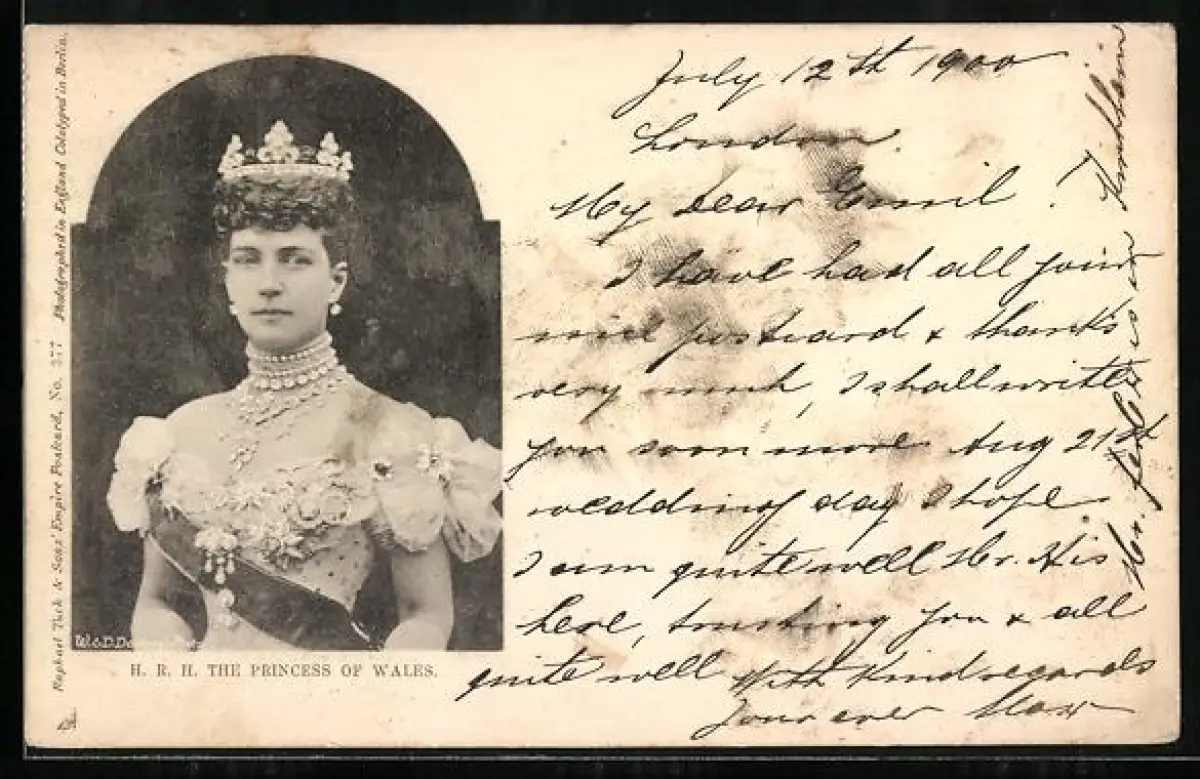 Raphael Tuck & Sons' Empire Postcard, No. 377 Photographed in England Colotyped in Berlin.
W. & D. Downey
H. R. H. THE PRINCESS OF WALES.
July 12th 1900
London.
My dear Emil!
I have had all your
nice postcard & thanks
very much, I shall write
you soon more Aug 21st
wedding day I hope
I am quite well Mr. His
here, trusting you & all
quite well With kind regards
Your ever Max
Mr. is in